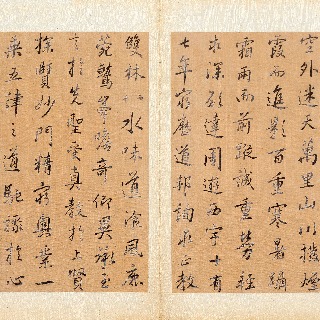 空外迷天萬里山川撥煙
霞而進影百重寒暑躡
霜雨而前蹤誠重勞輕
求深願達周遊西宇十有
七年窮歷道邦詢求正教
雙林八水味道飡風鹿
菀鷲峯瞻奇仰異承至
言於先聖受真教於上賢
探賾妙門精窮奧業一
乘五律之道馳驟於心